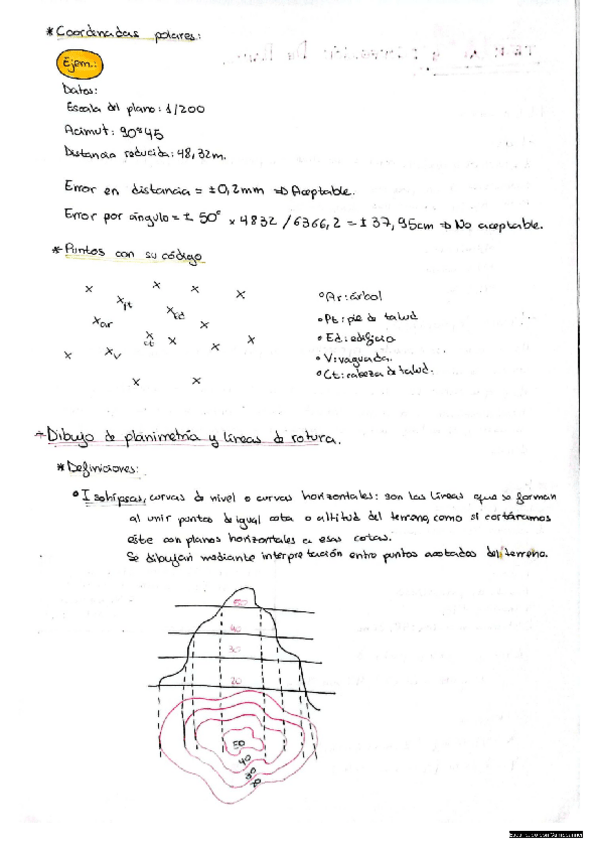 * Coordenadas polares:
Ejem.:
Datos:
Escala del plano: 1/200
Acimut: 90ᵍ45
Distancia reducida: 48,32m.
Error en distancia = ±0,2mm ⇒ Aceptable.
Error por ángulo = ± 50ᶜ × 4832 / 6366,2 = ± 37,95cm ⇒ No aceptable.
* Puntos con su código
x x x x
x pt
x ar x Ed x
x ct x x x
x x v
x x
° Ar: árbol
• Pt: pie de talud
• Ed: edificio
• V: vaguada.
° Ct: cabeza de talud.
* Dibujo de planimetría y líneas de rotura.
* Definiciones:
• Isohipsas, curvas de nivel o curvas horizontales: son las líneas que se forman
al unir puntos de igual cota o altitud del terreno, como si cortáramos
este con planos horizontales a esas cotas.
Se dibujan mediante interpretación entre puntos acotados del terreno.
50
40
30
20
50
40
30
20